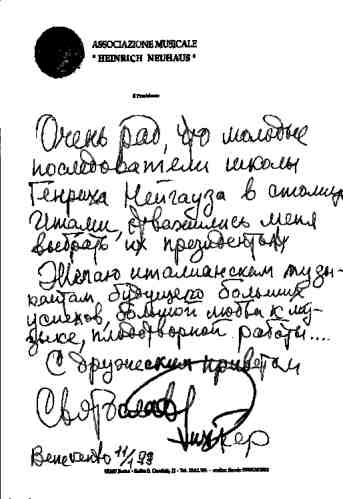 ASSOCIAZIONE MUSICALE
"HEINRICH NEUHAUS"
Il Presidente
Очень рад, что молодые
последователи школы
Генриха Нейгауза в столице
Италии, отважились меня
выбрать их президентом
Желаю итальянским музы-
кантам будущего больших
успехов, большой любви к му-
зыке, плодотворной работы....
С дружеским приветом
Святослав
Рихтер
Benevento 11/1 93